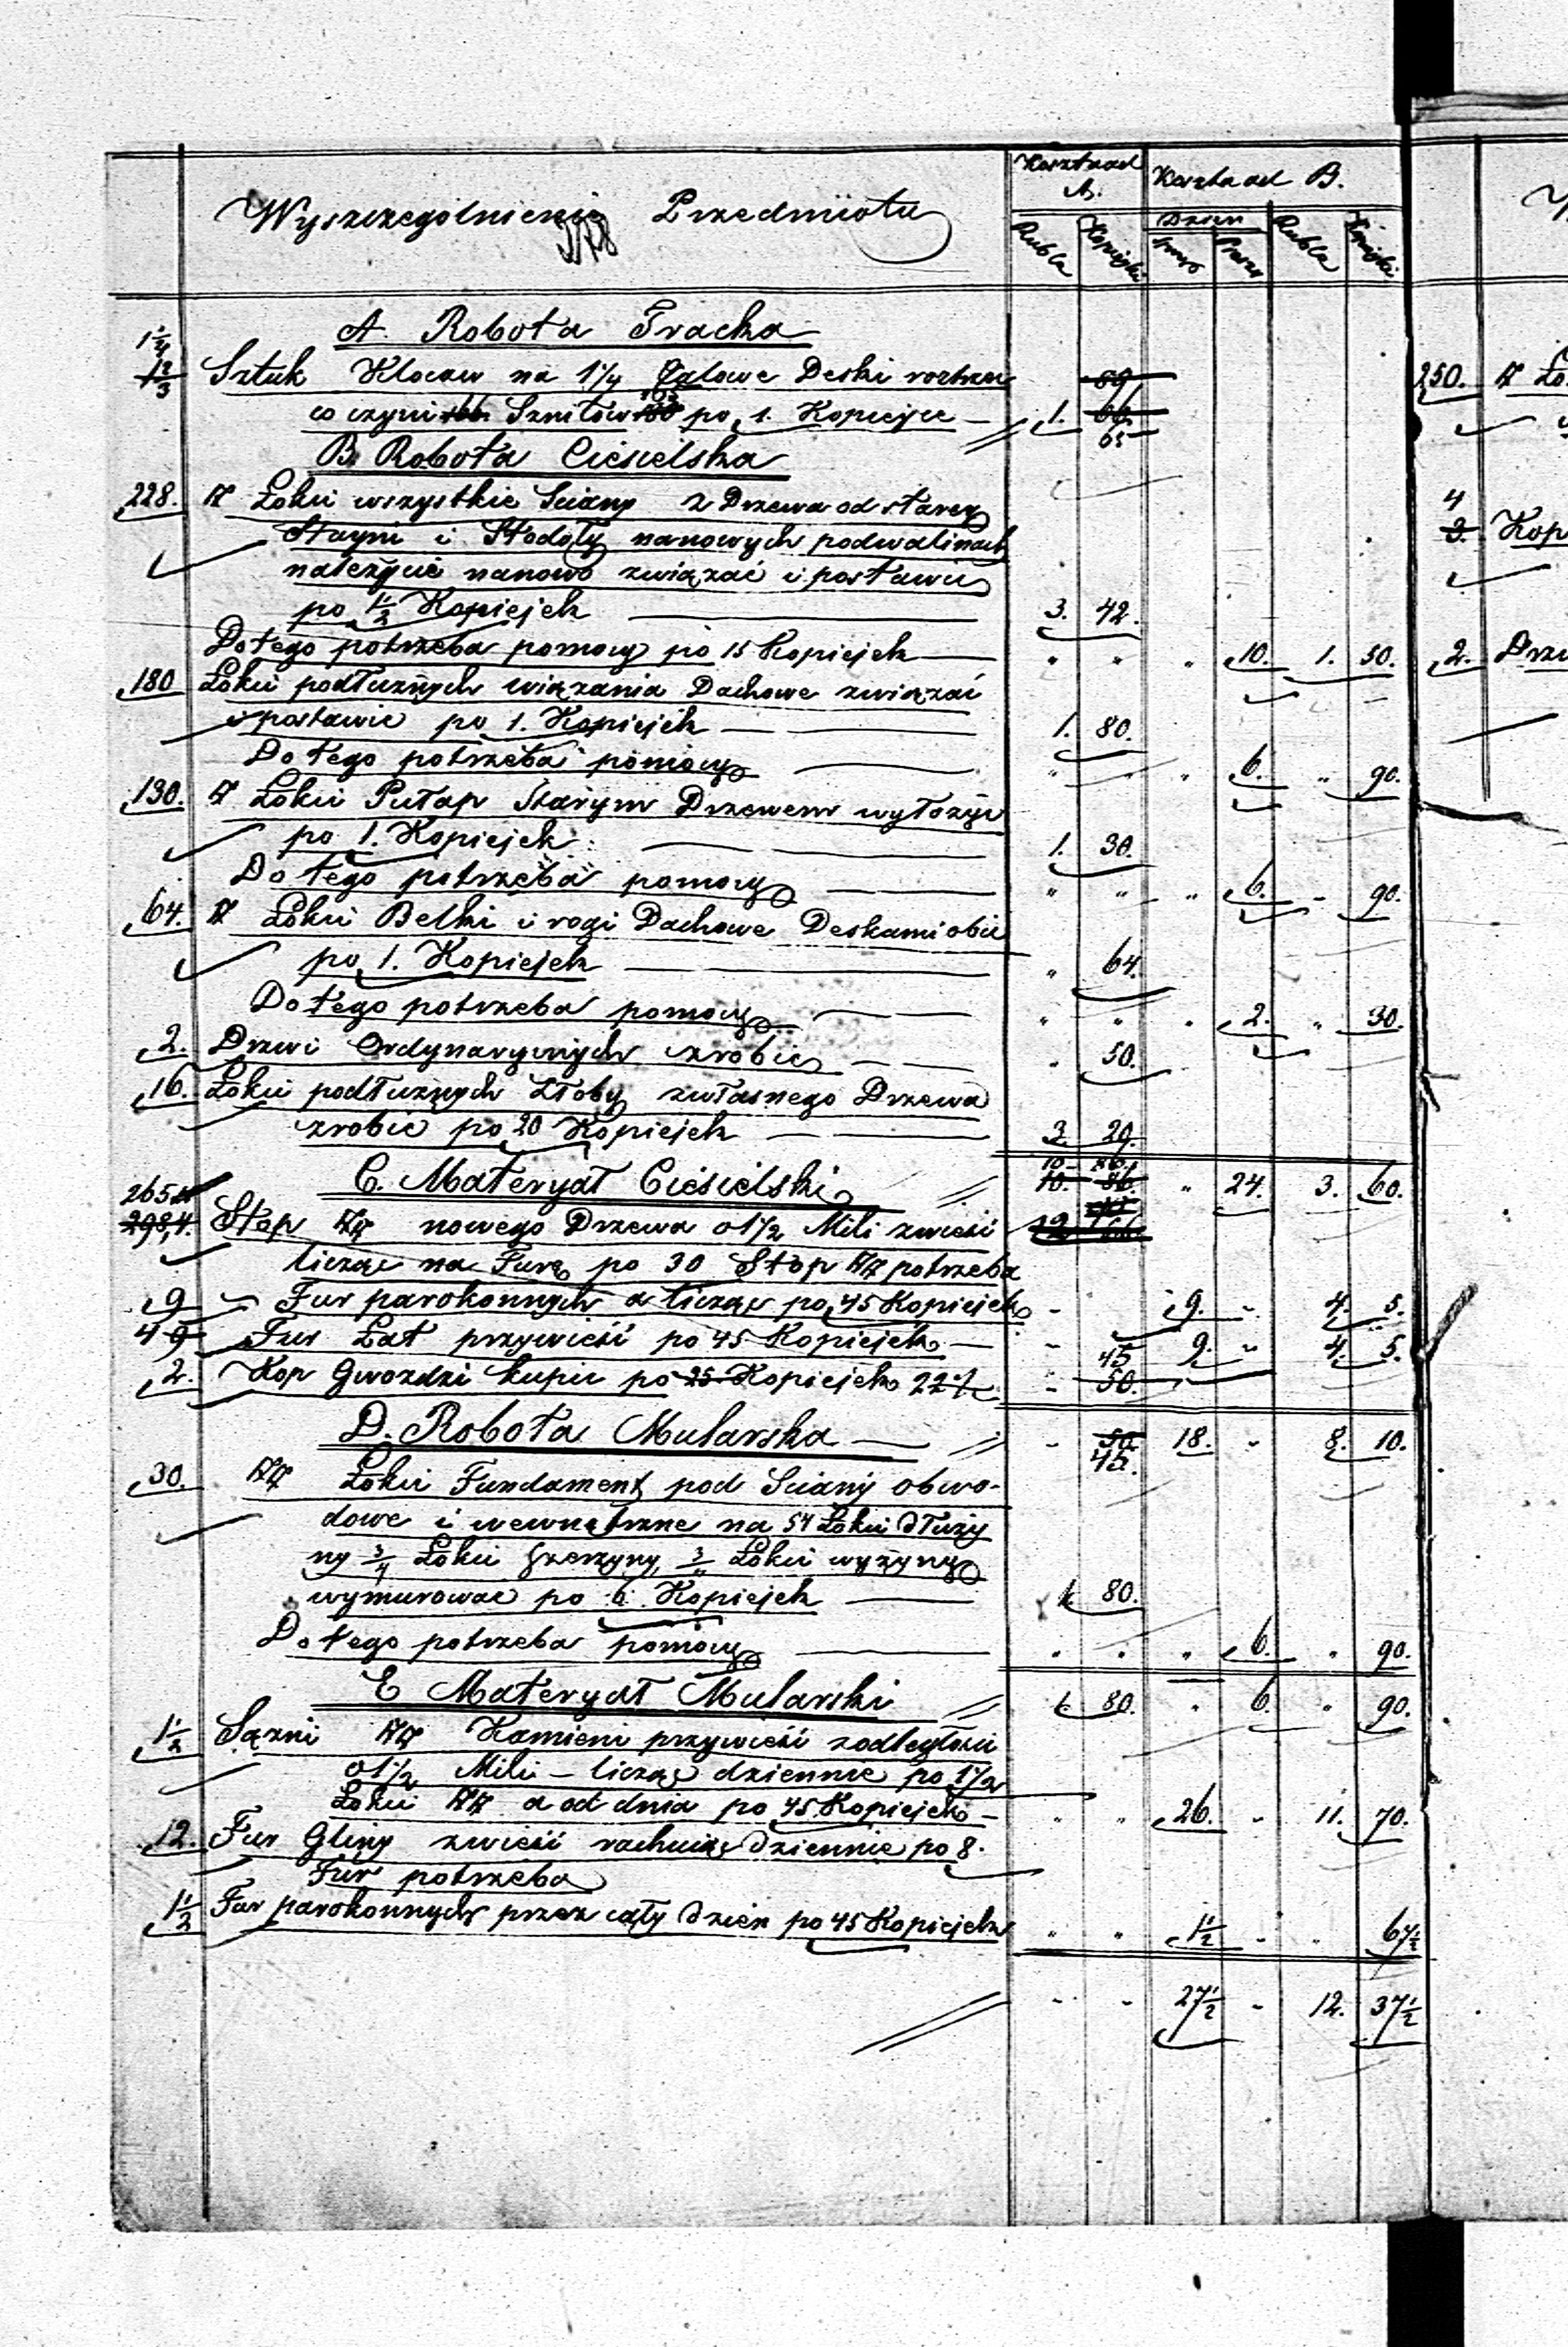 Wyszczegolnienie Przedmiotu
Koszta ad A.
Koszta ad B.
Rubla Kopiejki Dzien Rubla Kopiejki
A. Robota Tracka
1 1/4
1 2/3 Sztuk Klocow na 1 1/4 Calowe Deski
co czyni 166 Sznitow 165 po 1. Kopiejce — 1. 66 65
B. Robota Ciesielska
228. # Łokci wszystkie Sciany z Drzewa od starey
Stayni i Stodoły nanowych podwalinach
należycie nanowo związać i postawić
po 1 1/2 Kopiejek — 3. 42.
Do tego potrzeba pomocy po 15 Kopiejek — " " " 10. 1. 50.
180 Łokci podłużnych wiązania Dachowe związać
i postawić po 1. Kopiejek — 1. 80.
Do tego potrzeba pomocy — " " " 6. " 90.
130. # Łokci Pułap Starym Drzewem wyłożyć
po 1. Kopiejek — 1. 30.
Do tego potrzeba pomocy — " " " 6. - 90.
64. # Łokci Belki i rogi Dachowe Deskami obić
po 1. Kopiejek — " 64.
Do tego potrzeba pomocy — " " " 2. " 30.
2. Drzwi Ordynaryinych zrobić — " 50.
16. Łokci podłużnych Złoby zwłasnego Drzewa
zrobić po 20 Kopiejek — 3. 20.
C. Materyał Ciesielski 10. 86 " 24. 3. 60.
265
298,4. Stop ## nowego Drzewa o 1 1/2 Mili zwieść
licząc na Furę po 30 Stop ## potrzeba
9 Fur parokonnych a licząc po 45 Kopiejek - 9. " 4. 5.
4 9 Fur Łat przywieść po 45 Kopiejek — - 9. " 4. 5.
2. Kop Gwozdzi kupić po 25 Kopiejek 22 1/2 - 45 50.
D. Robota Mularska — - 50 45. 18. " 8. 10.
30. ## Łokci Fundament pod Sciany obwo-
dowe i wewnętrzne na 54 Łokci dłuży
ny 3/4 Łokci szerzyny, 3/4 Łokci wyżyny
wymurować po 6. Kopiejek — 1. 80.
Do tego potrzeba pomocy — " " " 6. " 90.
E Materyał Mularski 1. 80. " 6. " 90.
1 1/2 Sążni ## Kamieni przywieść zodległości
o 1 1/2 Mili – licząc dziennie po 1 1/2
Łokci ## a od dnia po 45 Kopiejek – " " 26. " 11. 70.
12. Fur Gliny zwieść rachując dziennie po 8.
Fur potrzeba
1 1/2 Fur parokonnych przez cały dzien po 45 Kopiejek " " 1 1/2 - " 67 1/2
- - 27 1/2 - 12. 37 1/2
250. # Ło
4
3. Kop
2. Drzw